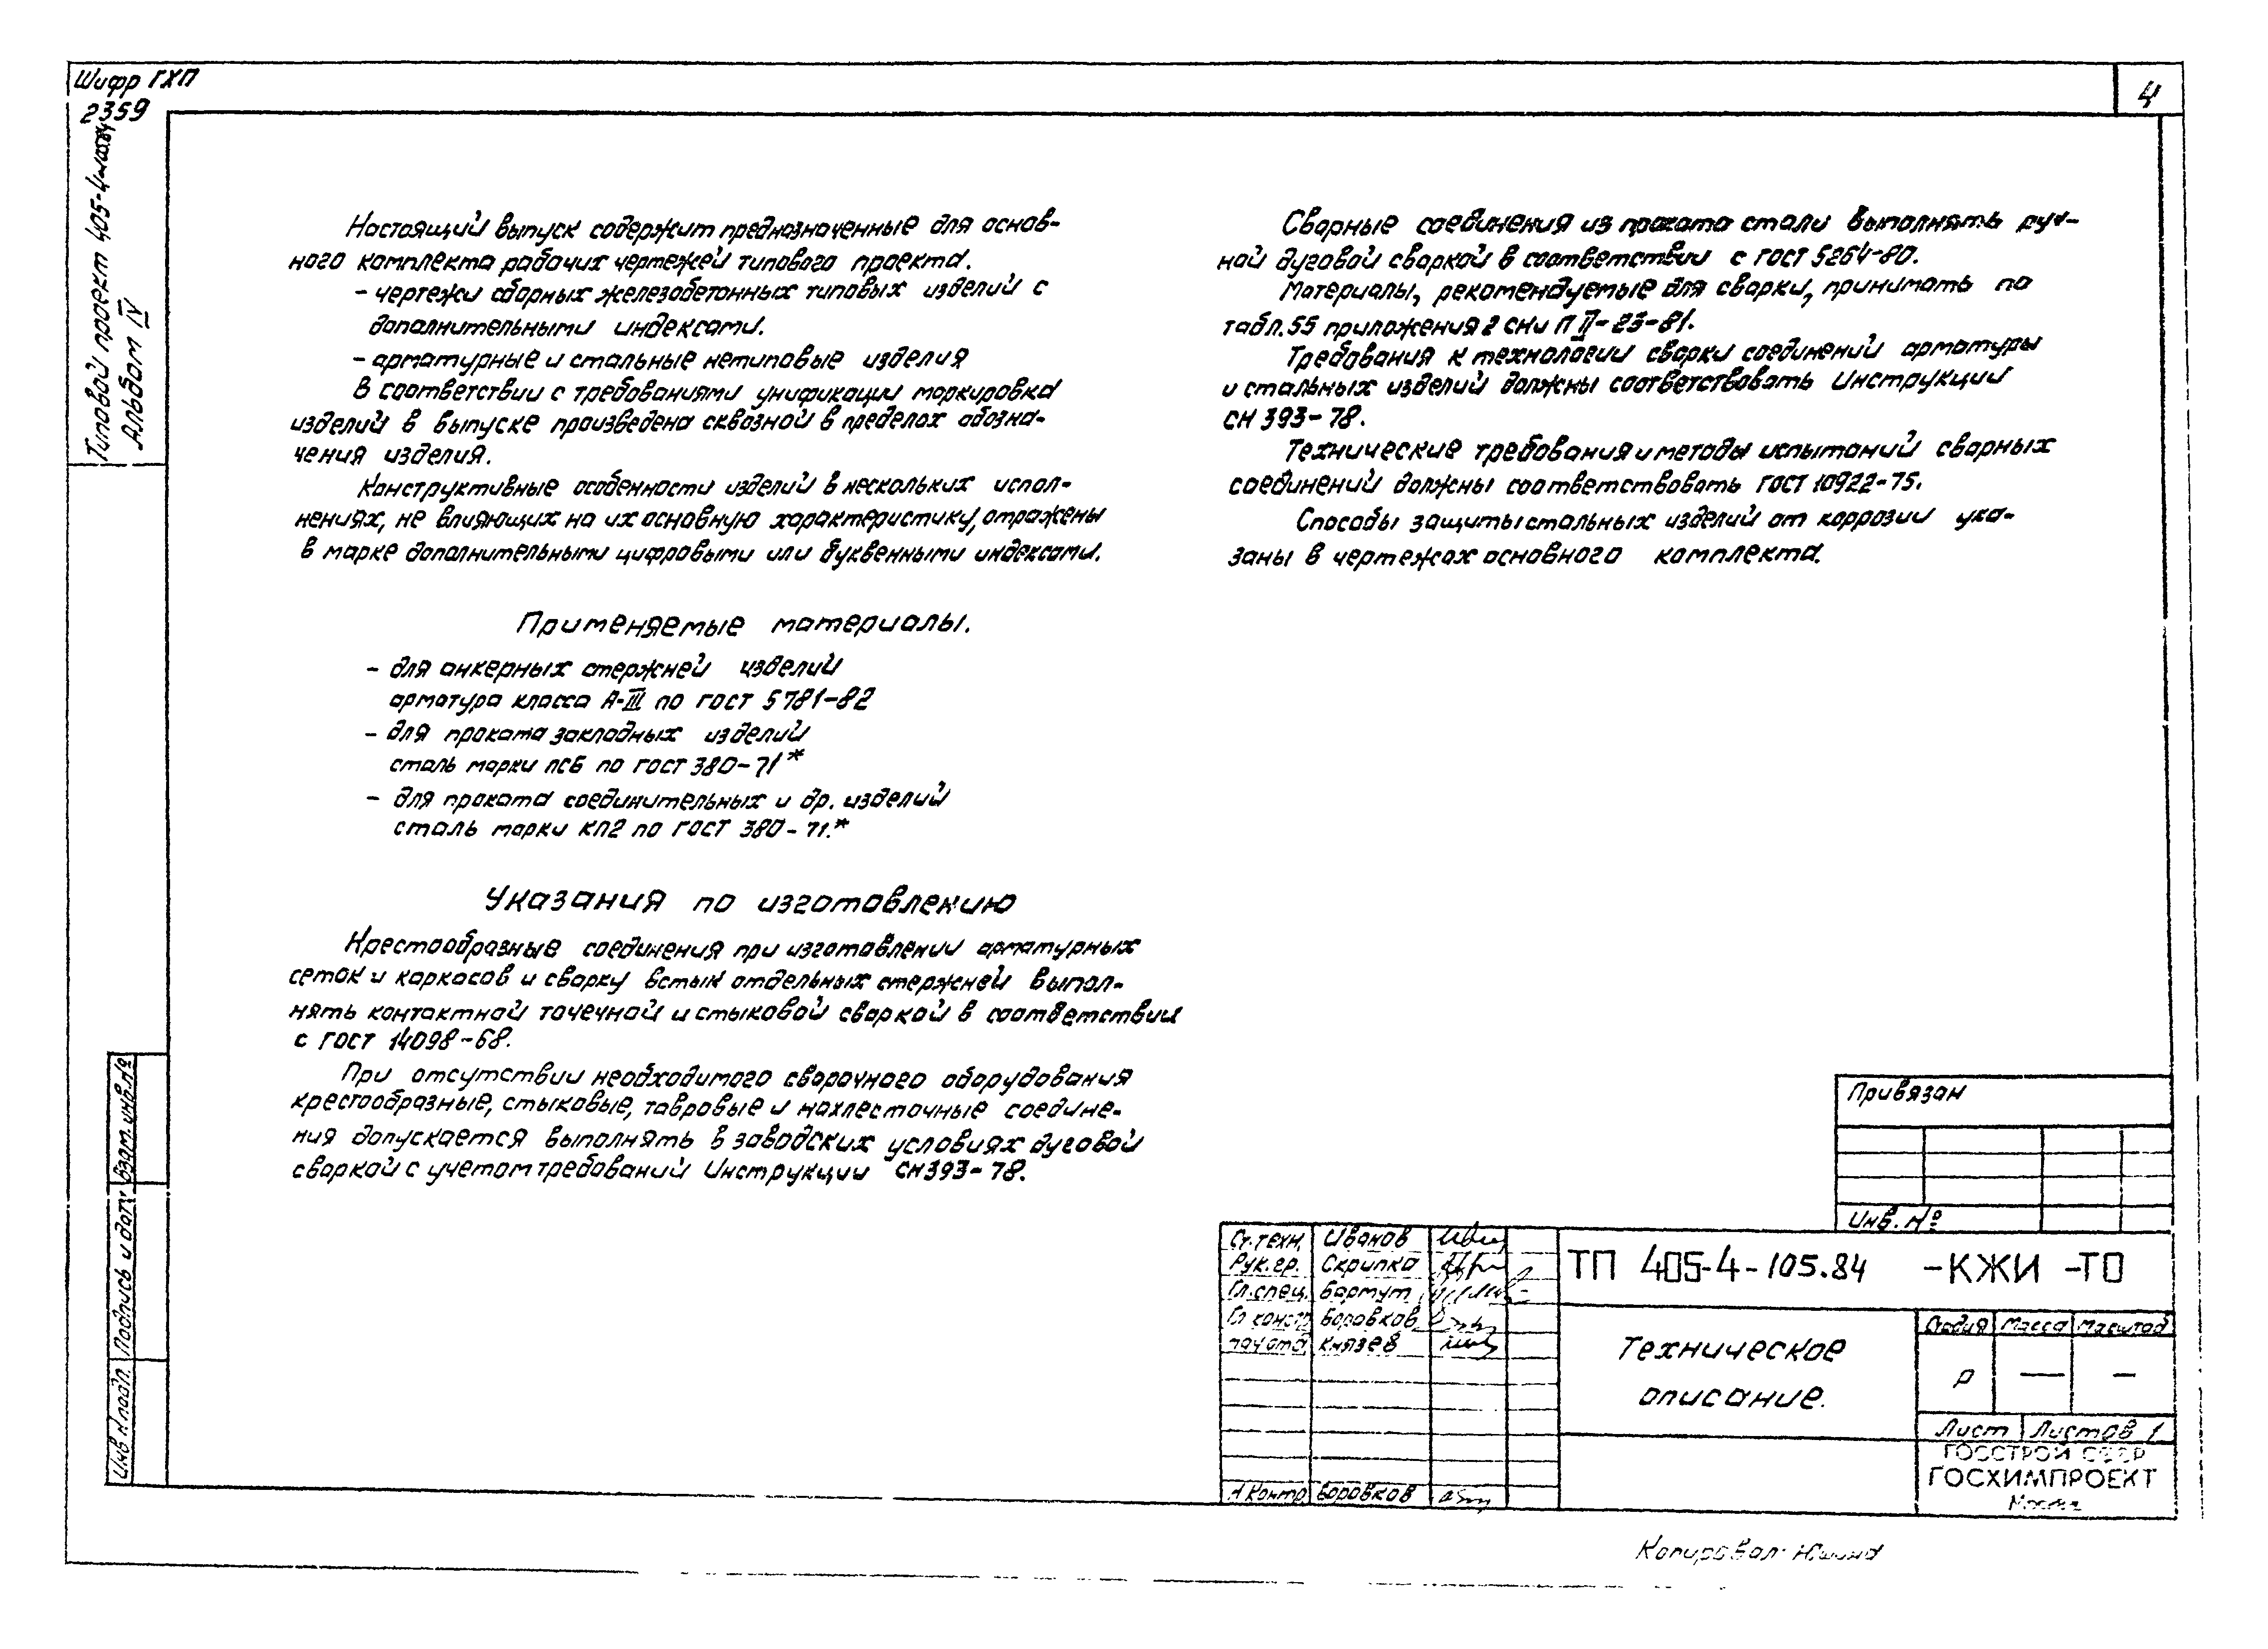 Шифр ГХП
2359
4
Типовой проект 405-4-
Альбом IV
Настоящий выпуск содержит предназначенные для основ-
ного комплекта рабочих чертежей типового проекта.
– чертежи сборных железобетонных типовых изделий с
дополнительными индексами.
– арматурные и стальные нетиповые изделия
В соответствии с требованиями унификации маркировка
изделий в выпуске произведена сквозной в пределах обозна-
чения изделия.
Конструктивные особенности изделий в нескольких испол-
нениях, не влияющих на их основную характеристику, отражены
в марке дополнительными цифровыми или буквенными индексами.
Применяемые материалы.
– для анкерных стержней изделий
арматура класса А-III по ГОСТ 5781-82
– для проката закладных изделий
сталь марки пс6 по ГОСТ 380-71*
– для проката соединительных и др. изделий
сталь марки кп2 по ГОСТ 380-71.*
Указания по изготовлению
Крестообразные соединения при изготовлении арматурных
сеток и каркасов и сварку встык отдельных стержней выпол-
нять контактной точечной и стыковой сваркой в соответствии
с ГОСТ 14098-68.
При отсутствии необходимого сварочного оборудования
крестообразные, стыковые, тавровые и нахлесточные соедине-
ния допускается выполнять в заводских условиях дуговой
сваркой с учетом требований Инструкции СН 393-78.
Сварные соединения из проката стали выполнять руч-
ной дуговой сваркой в соответствии с ГОСТ 5264-80.
Материалы, рекомендуемые для сварки, принимать по
табл. 55 приложения 2 СНиП II-23-81.
Требования к технологии сварки соединений арматуры
и стальных изделий должны соответствовать Инструкции
СН 393-78.
Технические требования и методы испытаний сварных
соединений должны соответствовать ГОСТ 10922-75.
Способы защиты стальных изделий от коррозии ука-
заны в чертежах основного комплекта.
Взам. инв. №
Подпись и дата
Инв N подл.
Привязан
Инв. №
Ст. техн. Иванов
Рук. гр. Скрипка
Гл. спец. Бартут
Гл констр Боровков
Нач отд Князев
Н. Контр Боровков
ТП 405-4-105.84 -КЖИ -ТО
Техническое
описание.
Стадия Масса Масштаб
Р — –
Лист Листов 1
ГОССТРОЙ СССР
ГОСХИМПРОЕКТ
Москва
Копировал: Юшина